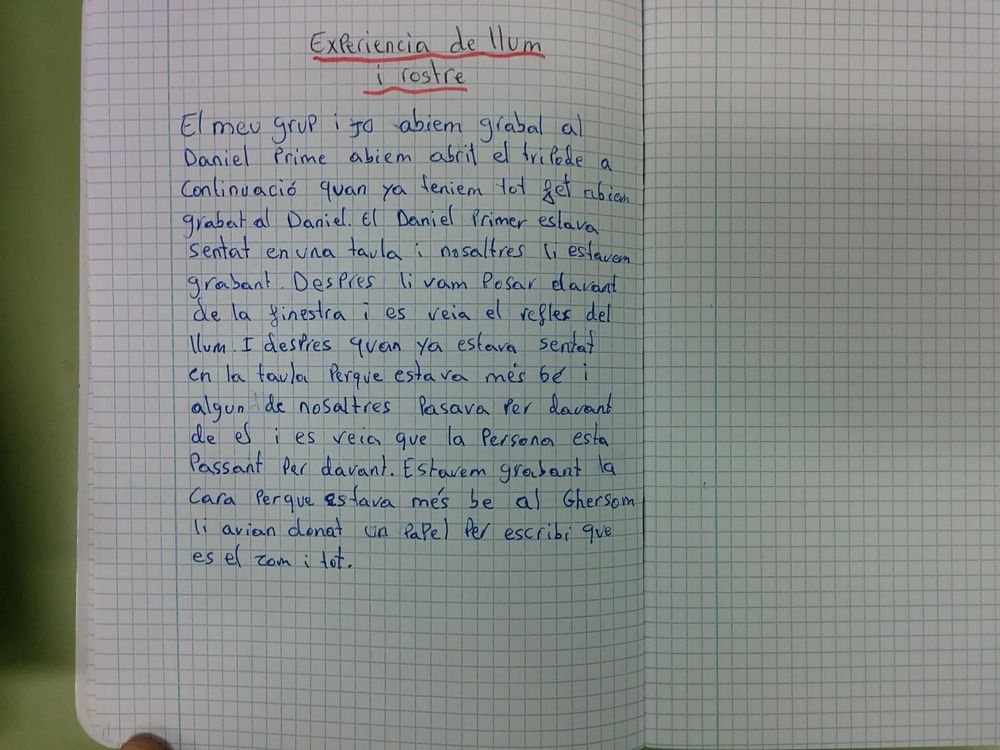 Experiencia de llum
i rostre
El meu grup i jo abiem grabal al
Daniel Prime abiem abril el tripode a
Continuació quan ya teniem tot fet abiem
grabat al Daniel. El Daniel Primer estava
sentat en una taula i nosaltres li estavem
grabant. Despres li vam Posar davant
de la finestra i es veia el refles del
llum. I despres quan ya estava sentat
en la taula Perque estava més bé i
algun de nosaltres Pasava Per davant
de el i es veia que la Persona esta
Passant Per davant. Estavem grabant la
Cara Perque estava més be al Ghersom
li avian donat un PaPel Per escribi que
es el zom i tot.